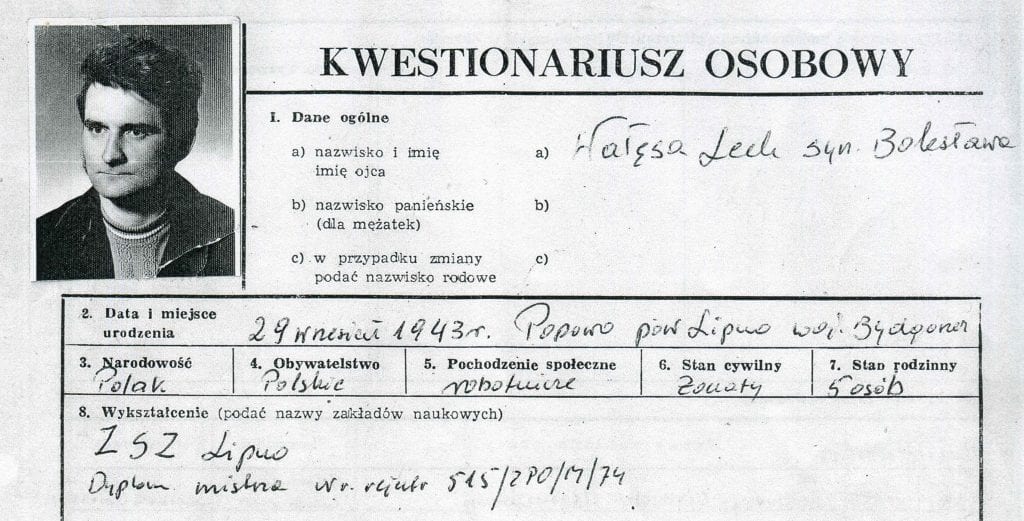 KWESTIONARIUSZ OSOBOWY
1. Dane ogólne
a) nazwisko i imię
imię ojca
a) Wałęsa Lech syn. Bolesława
b) nazwisko panieńskie
(dla mężatek)
b)
c) w przypadku zmiany
podać nazwisko rodowe
c)
2. Data i miejsce
urodzenia
29 wrzesień 1943 r. Popowo pow Lipno woj.
3. Narodowość
Polak
4. Obywatelstwo
Polskie
5. Pochodzenie społeczne
robotnicze
6. Stan cywilny
Żonaty
7. Stan rodzinny
5 osób
8. Wykształcenie (podać nazwy zakładów naukowych)
ZSZ Lipno
Dyplom mistrza Nr. 515/270/M/74